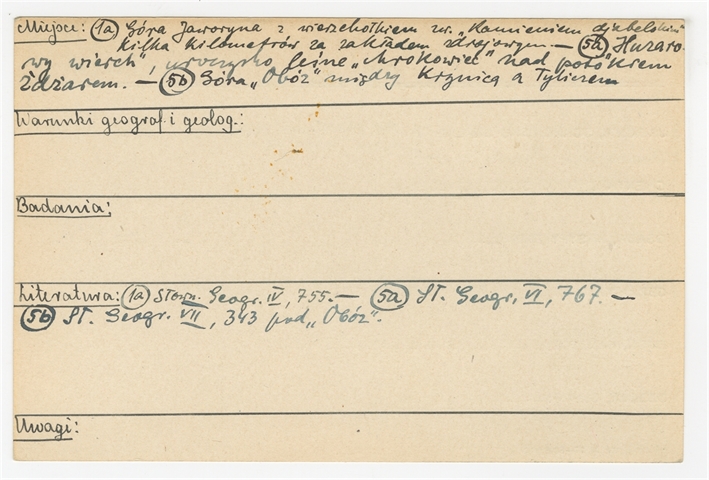 Miejsce: (1a) Góra Jaworyna z wierzchołkiem zw. „Kamieniem dyabelskim"
kilka kilometrów za zakładem zdrojowym — (5a) „Huzaro
wy wierch", uroczysko leśne „Mrokowiec" nad potokiem
Zdżarem. — (5b) Góra „Obóz" między Krynicą a Tyliczem
Warunki geograf. i geolog.:
Badania:
Literatura: (1a) Słown. Geogr. IV, 755. — (5a) Sł. Geogr. VI, 767. —
(5b) Sł. Geogr. VII, 343 pod „Obóz".
Uwagi: